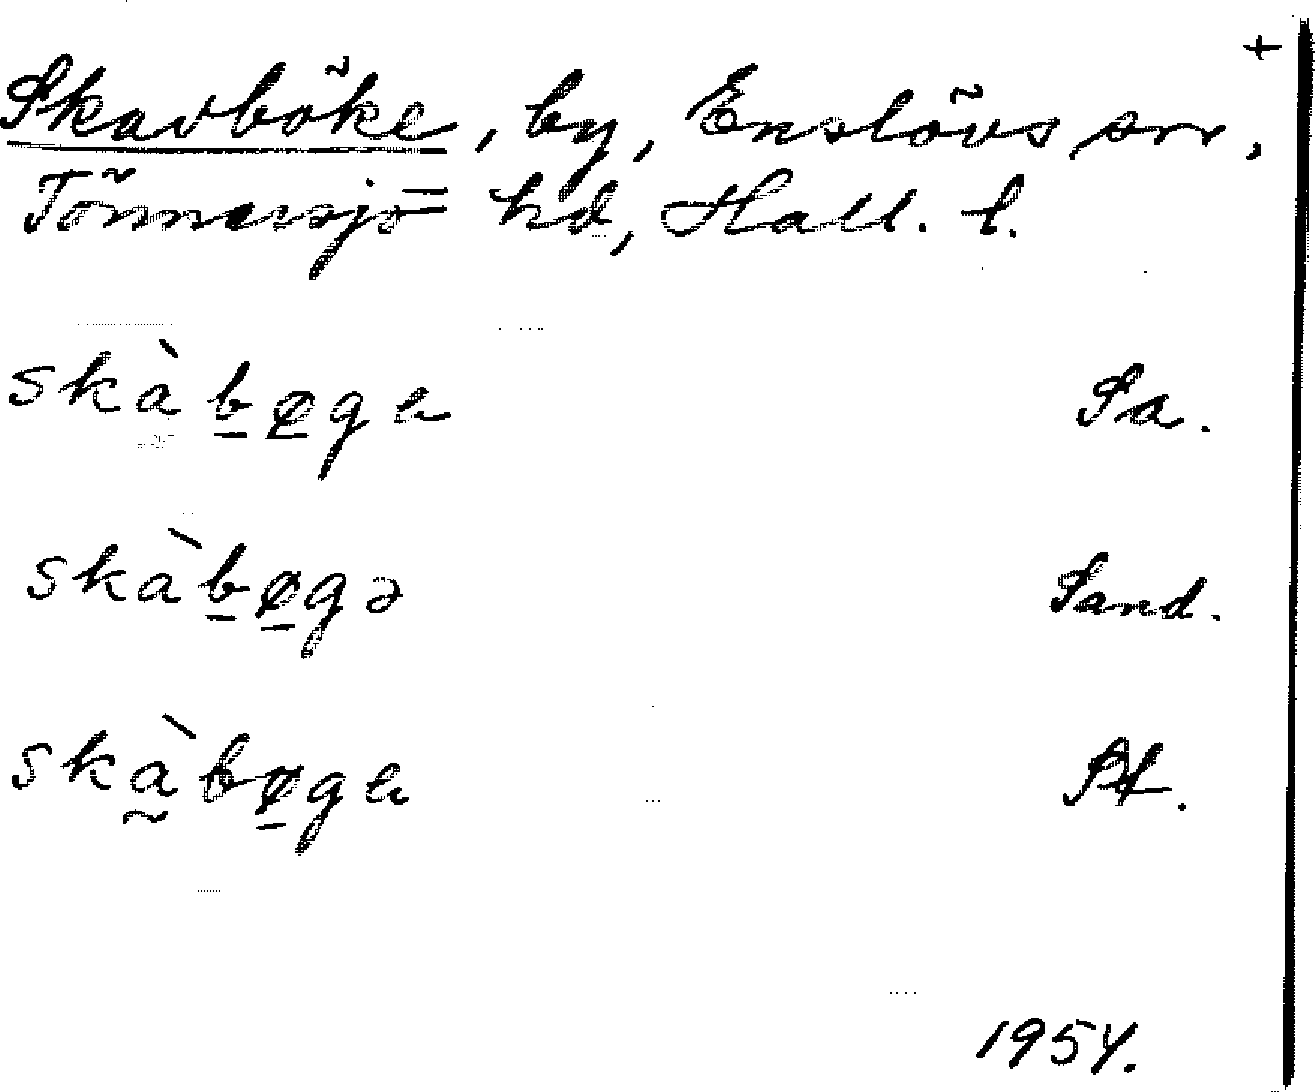 +
Skavböke, by, Enslövs sn,
Tönnersjö hd, Hall. l.
skàb̲ø̲ga Sa.
skàb̲ø̲gə Sand.
skà̰bø̲ga St.
1954.